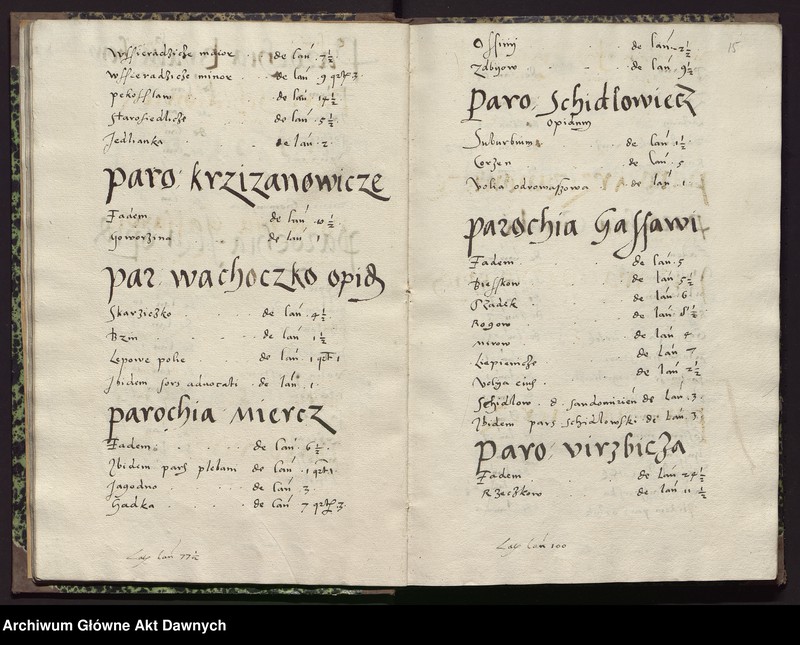 Wssieradzicze maior de lań 7½
Wssieradzicze minor de lań 9 qrt 3
pekosslaw de lań 14½
Starosiedlicze de lań 5½
Jedlianka de lań 2
paro krzizanowicze
Eadem de lań 10½
Goworzina de lań 1
par wachoczko opid
Skarziczko de lań 4½
Bzin de lań 1½
Lepowe polie de lań 1 qrt 1
Ibidem sors advocati de lań 1
parochia Miercz
Eadem de lań 6½
Ibidem pars plebani de lań 1 qrt 1
Jagodno de lań 3
Gadka de lań 7 qrt 3
Laṅ 77½
15
Ossiny de lań 2½
Zdbyow de lań 9½
Paro Schidlowiecz
opidum
Suburbium de lań 1½
Corzen de lań 5
Volia odromaszowa de lań 1
parochia Gassawi
Eadem de lań 5
Biesskow de lań 5½
Czadek de lań 6
Rogow de lań 8½
Mirow de lań 4
Liepienicze de lań 7
Volya eius de lań 2½
Schidlow d. sandomirień de lań 3
Ibidem pars schidlowski de lań 3
Paro virzbicza
Eadem de lań 24½
Rzeczkow de lań 11½
lań 100
Archiwum Główne Akt Dawnych